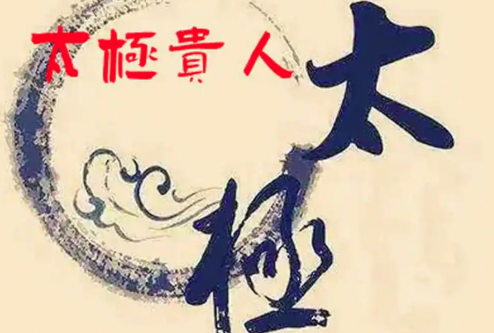 太極貴人
太極